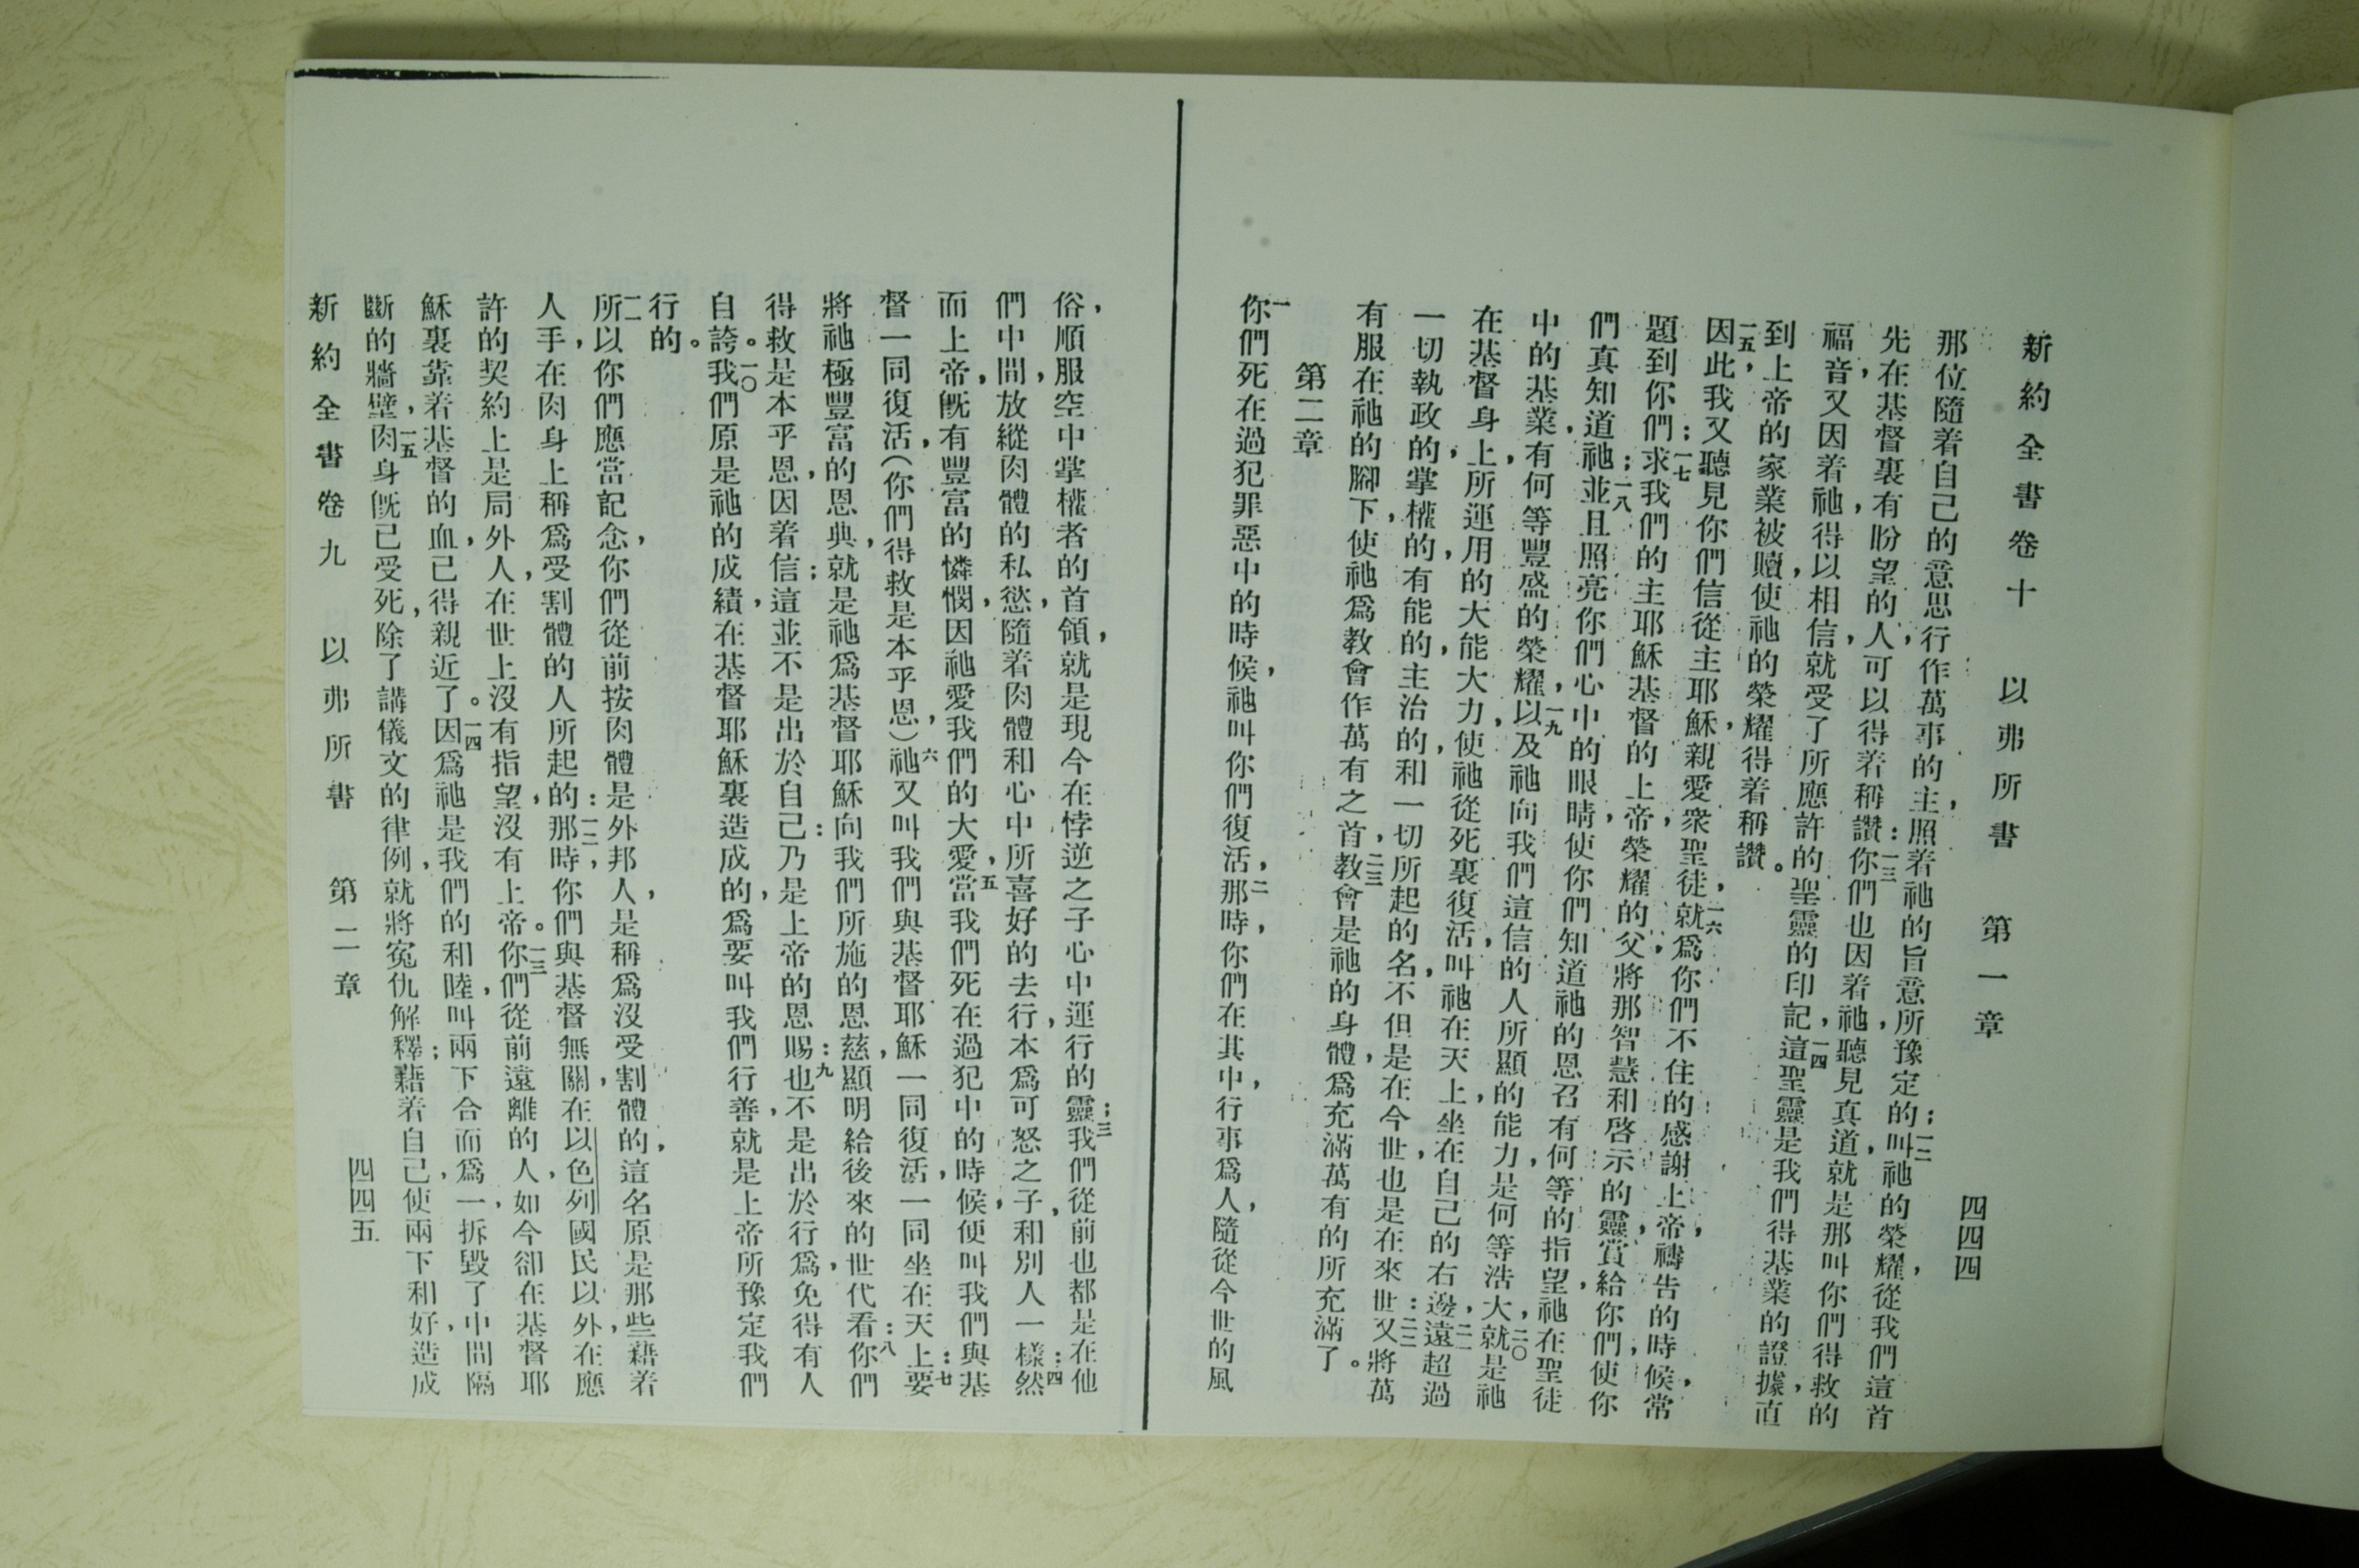 新約全書卷十 以弗所書 第一章 四四四
那位隨着自己的意思行作萬事的主，照着祂的旨意所豫定的；一二叫祂的榮耀，從我們這首
先在基督裏有盼望的人，可以得着稱讚：一三你們也因着祂，聽見真道，就是那叫你們得救的
福音，又因着祂，得以相信，就受了所應許的聖靈的印記，一四這聖靈是我們得基業的證據，直
到上帝的家業被贖，使祂的榮耀得着稱讚。
一五因此，我又聽見你們信從主耶穌，親愛衆聖徒，一六就爲你們不住的感謝上帝，禱告的時候，常
題到你們；一七求我們的主耶穌基督的上帝，榮耀的父，將那智慧和啓示的靈，賞給你們，使你
們真知道祂；一八並且照亮你們心中的眼睛，使你們知道祂的恩召有何等的指望，祂在聖徒
中的基業，有何等豐盛的榮耀，一九以及祂向我們這信的人所顯的能力，是何等浩大，二〇就是祂
在基督身上，所運用的大能大力，使祂從死裏復活，叫祂在天上，坐在自己的右邊，二一遠超過
一切執政的，掌權的，有能的，主治的，和一切所起的名，不但是在今世，也是在來世：二二又將萬
有服在祂的腳下，使祂爲教會作萬有之首，二三教會是祂的身體，爲充滿萬有的所充滿了。
第二章
一你們死在過犯罪惡中的時候，祂叫你們復活，二那時，你們在其中，行事爲人，隨從今世的風
俗，順服空中掌權者的首領，就是現今在悖逆之子心中運行的靈；三我們從前也都是在他
們中間，放縱肉體的私慾，隨着肉體和心中所喜好的去行，本爲可怒之子，和別人一樣：四然
而上帝，旣有豐富的憐憫，因祂愛我們的大愛，五當我們死在過犯中的時候，便叫我們與基
督一同復活，（你們得救是本乎恩，）六祂又叫我們與基督耶穌一同復活，一同坐在天上：七要
將祂極豐富的恩典，就是祂爲基督耶穌向我們所施的恩慈，顯明給後來的世代看：八你們
得救是本乎恩，因着信；這並不是出於自己：乃是上帝的恩賜：九也不是出於行爲，免得有人
自誇。一〇我們原是祂的成績，在基督耶穌裏造成的，爲要叫我們行善，就是上帝所豫定我們
行的。
一一所以你們應當記念，你們從前按肉體是外邦人，是稱爲沒受割體的，這名原是那些藉着
人手，在肉身上稱爲受割體的人所起的：一二那時，你們與基督無關，在以色列國民以外，在應
許的契約上是局外人，在世上沒有指望，沒有上帝。一三你們從前遠離的人，如今卻在基督耶
穌裏靠着基督的血，已得親近了。一四因爲祂是我們的和睦，叫兩下合而爲一，拆毀了中間隔
斷的牆壁，一五肉身旣已受死，除了講儀文的律例，就將寃仇解釋；藉着自己，使兩下和好，造成
新約全書卷九 以弗所書 第二章 四四五